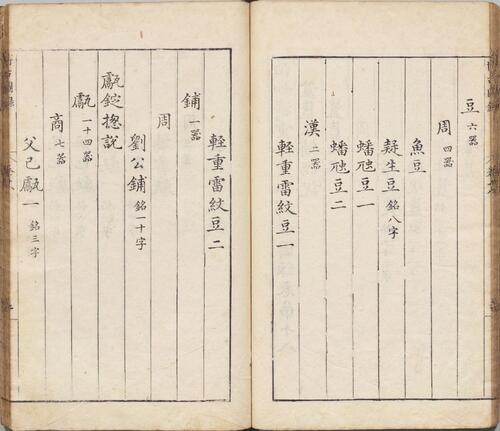 豆六器
周四器
魚豆
疑生豆銘八字
蟠虺豆一
蟠虺豆二
漢二器
輕重雷紋豆一
輕重雷紋豆二
鋪一器
周
劉公鋪銘一十字
甗錠揔說
甗一十四器
商七器
父己甗一銘三字